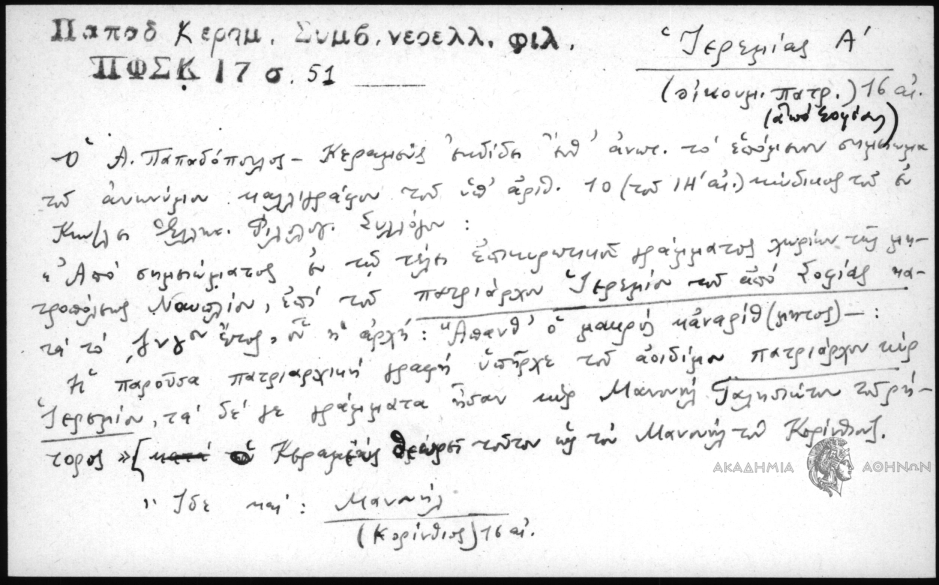 Παπαδ Κεραμ. Συμβ. νεοελλ. φιλ.
ΠΦΣΚ 17 σ. 51
Ἱερεμίας Α'
(οἰκουμ. πατρ.) 16 αἰ.
(ἀπό Σοφίας)
Ὁ Ἀ. Παπαδόπουλος - Κεραμεύς ἐκδίδει ἐνθ' ἀνωτ. τό ἑπόμενον σημείωμα
τοῦ ἀνωνύμου καλλιγράφου τοῦ ὑπ' ἀριθ. 10 (τοῦ ΙΗ' αἰ.) κώδικος τοῦ ἐν
Κων/λει Ἑλλην. Φιλολογ. Συλλόγου :
"Ἀπό σημειώματος ἐν τῷ τέλει ἐπικυρωτικοῦ γράμματος χωρίων τῆς μη-
τροπόλεως Ναυπλίου, ἐπί τοῦ πατριάρχου Ἱερεμίου τοῦ ἀπό Σοφίας κα-
τά τό ἔτος, οὗ ἡ ἀρχή : "Ἅπανθ' ὁ μακρός κἀναρίθ(μητος) — :
Ἡ παροῦσα πατριαρχική γραφή ὑπῆρχε τοῦ ἀοιδίμου πατριάρχου κύρ
Ἱερεμίου, τά δέ γε γράμματα ἦσαν κύρ Μανουήλ Γαλησιώτου τοῦ ῥή-
τορος » [ ὁ Κεραμεύς θεωρεῖ τοῦτον ὡς τόν Μανουήλ τόν Κορίνθιον].
Ἰδε καί : Μανουήλ
(Κορίνθιος) 16 αἰ.
ΑΚΑΔΗΜΙΑ ΑΘΗΝΩΝ